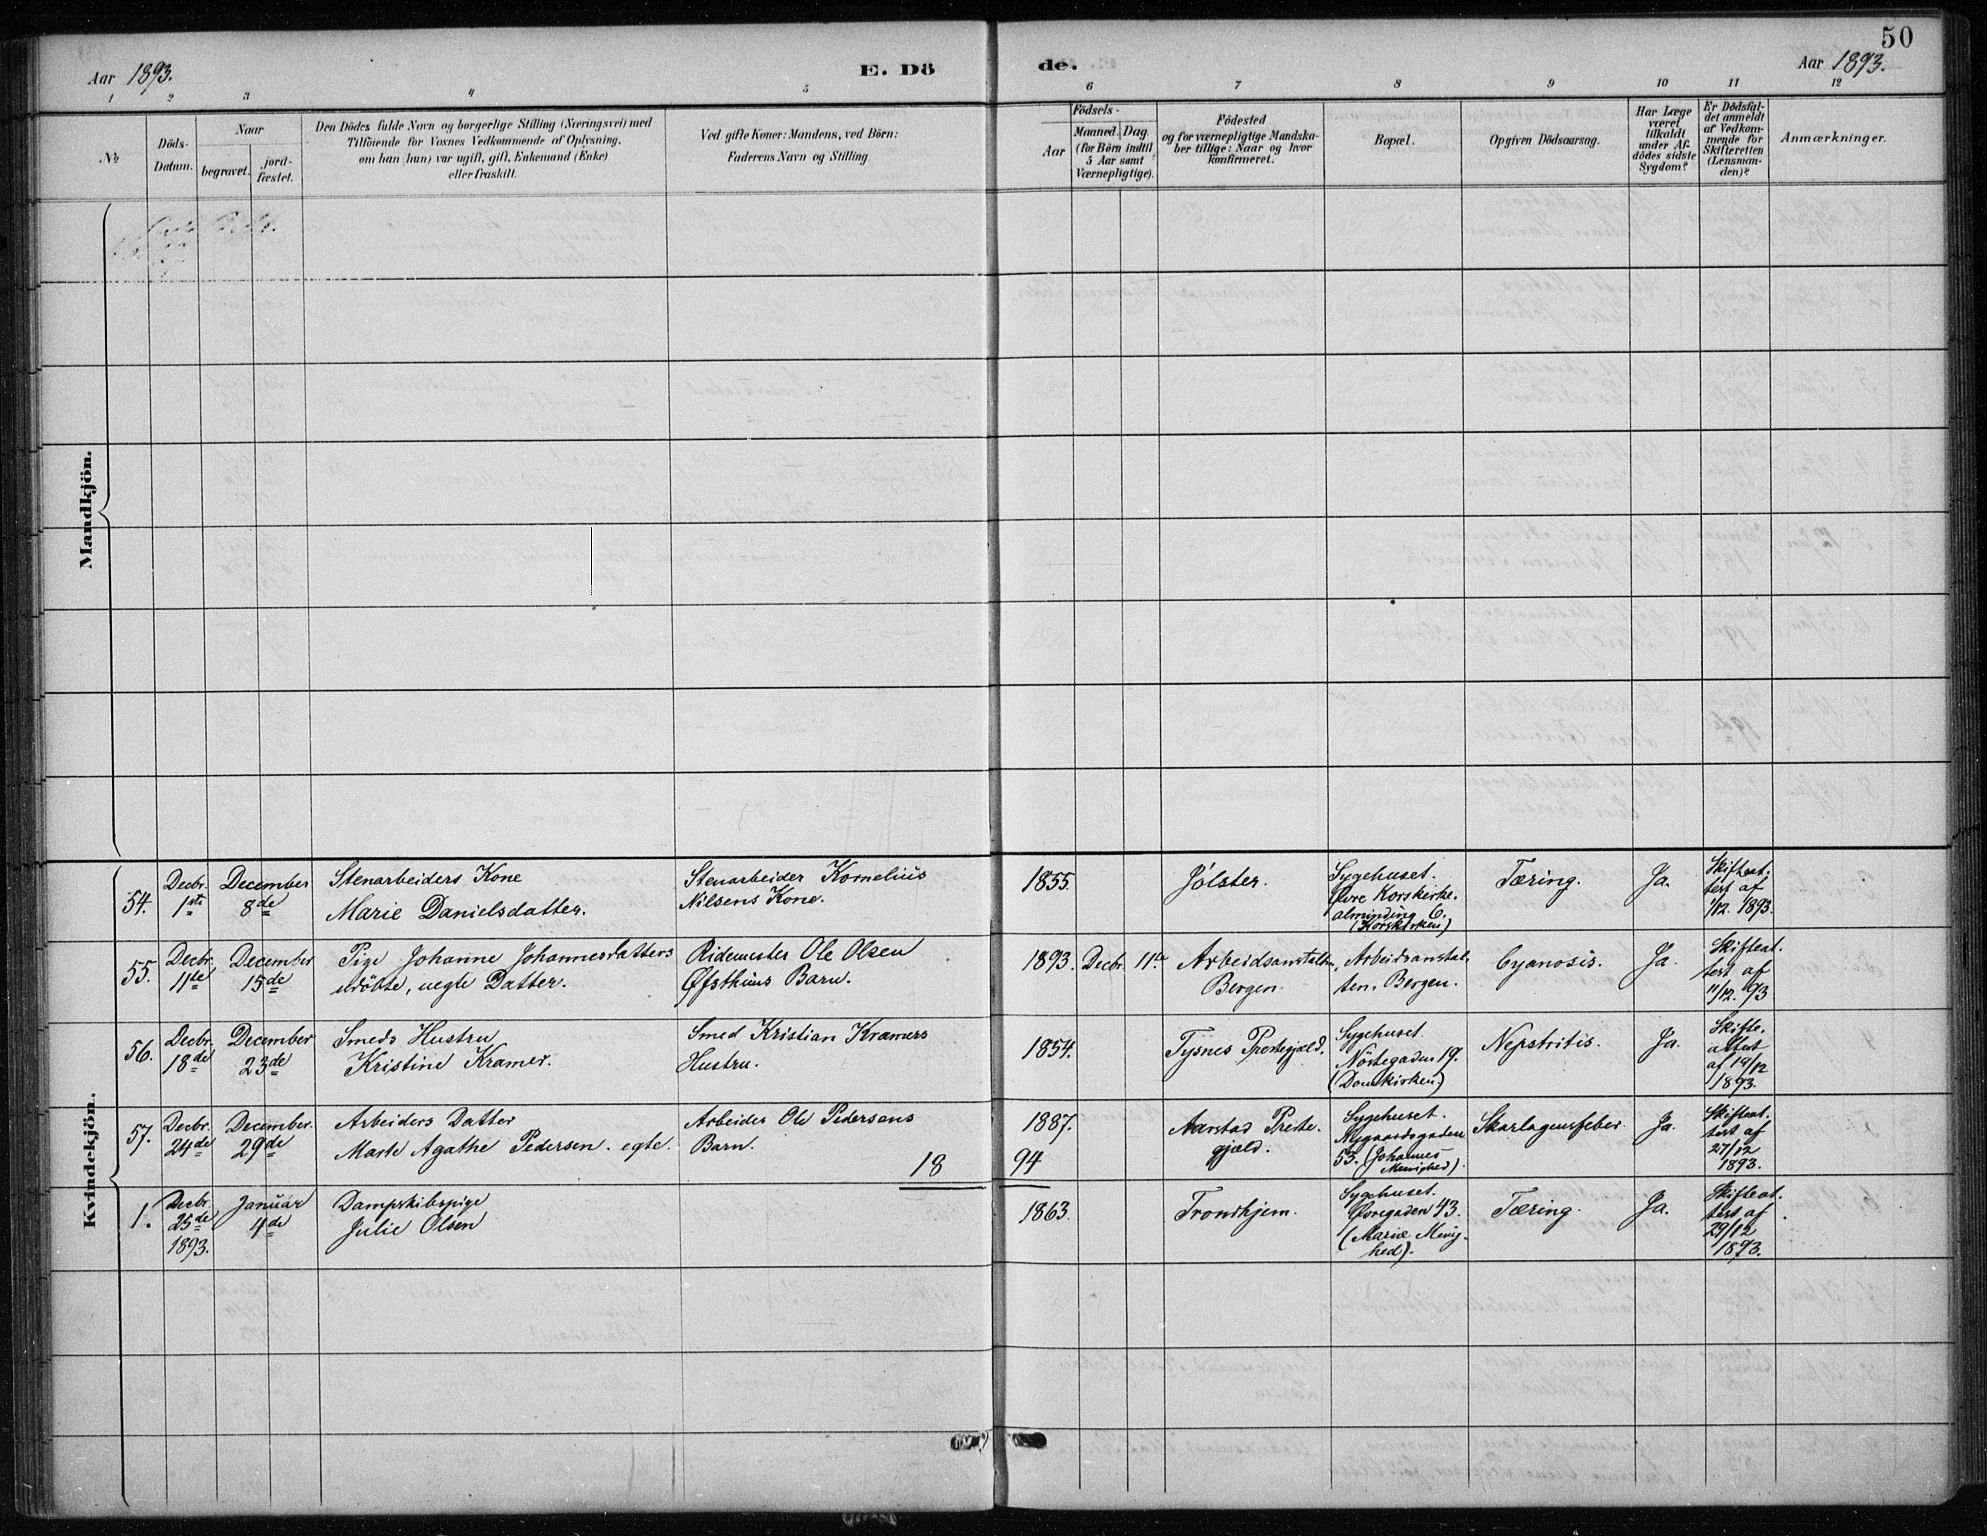 50
Aar 1893.
E. Dö
de.
Aar 1893.
1 2 3 4 5 6 7 8 9 10 11 12
№
Döds-
Datum.
Naar
begravet.
jord-
fæstet.
Den Dödes fulde Navn og borgerlige Stilling (Næringsvei) med
Tilföiende for Voxnes Vedkommende af Oplysning,
om han (hun) var ugift, gift, Enkemand (Enke)
eller fraskilt.
Ved gifte Koner: Mandens, ved Börn:
Faderens Navn og Stilling.
Födsels-
Aar
Maaned. Dag.
(for Börn indtil
5 Aar samt
Værnepligtige).
Födested
og for værnepligtige Mandska-
ber tillige: Naar og hvor
konfirmeret.
Bopæl.
Opgiven Dödsaarsag.
Har Læge
været
tilkaldt
under Af-
dödes sidste
Sygdom?
Er Dödsfal-
det anmeldt
af Vedkom-
mende for
Skifteretten
(Lensman-
den)?
Anmærkninger.
Mandkjön.
Kvindekjön.
54.
Decbr.
1ste
December
8de
Stenarbeiders Kone
Marie Danielsdatter.
Stenarbeider Kornelius
Nilsens Kone.
1855.
Jölster.
Sygehuset.
Øvre Korskirke-
alminding 6.
(Korskirken)
Tæring.
Ja.
Skifteat-
test af
1/12. 1893.
55.
Decbr.
11te
December
15de
Pige Johanne Johannesdatters
udöbte, uegte Datter.
Ridemester Ole Olsen
Øfsthuus Barn.
1893. Decbr. 11te
Arbeidsanstalten,
Bergen.
Arbeidsanstal-
ten. Bergen.
Cyanosis.
Ja.
Skifteat-
test af
11/12. 93
56.
Decbr.
18de
December
23de
Smeds Hustru
Kristine Kramer.
Smed Kristian Kramers
Hustru.
1854.
Tysnes Prestegjeld.
Sygehuset.
Nöstegaden 19.
(Domkirken)
Ja.
Skifte-
attest
af 19/12
1893.
57.
Decbr.
24de
December.
29de
Arbeiders Datter
Marte Agathe Pedersen. egte.
Arbeider Ole Pedersens
Barn.
18
1887.
94
Aarstad Preste-
gjæld.
Sygehuset.
Nygaardsgaden
53. (Johannes
Menighed).
Skarlagensfeber.
Ja.
Skifteat-
test af
27/12
1893.
1.
Decbr.
25de
1893.
Januar
4de
Dampskibspige
Julie Olsen
1863.
Trondhjem.
Sygehuset.
Øvregaden 43.
(Mariæ Menig-
hed).
Tæring.
Ja.
Skifteat-
test af
29/12
1893.